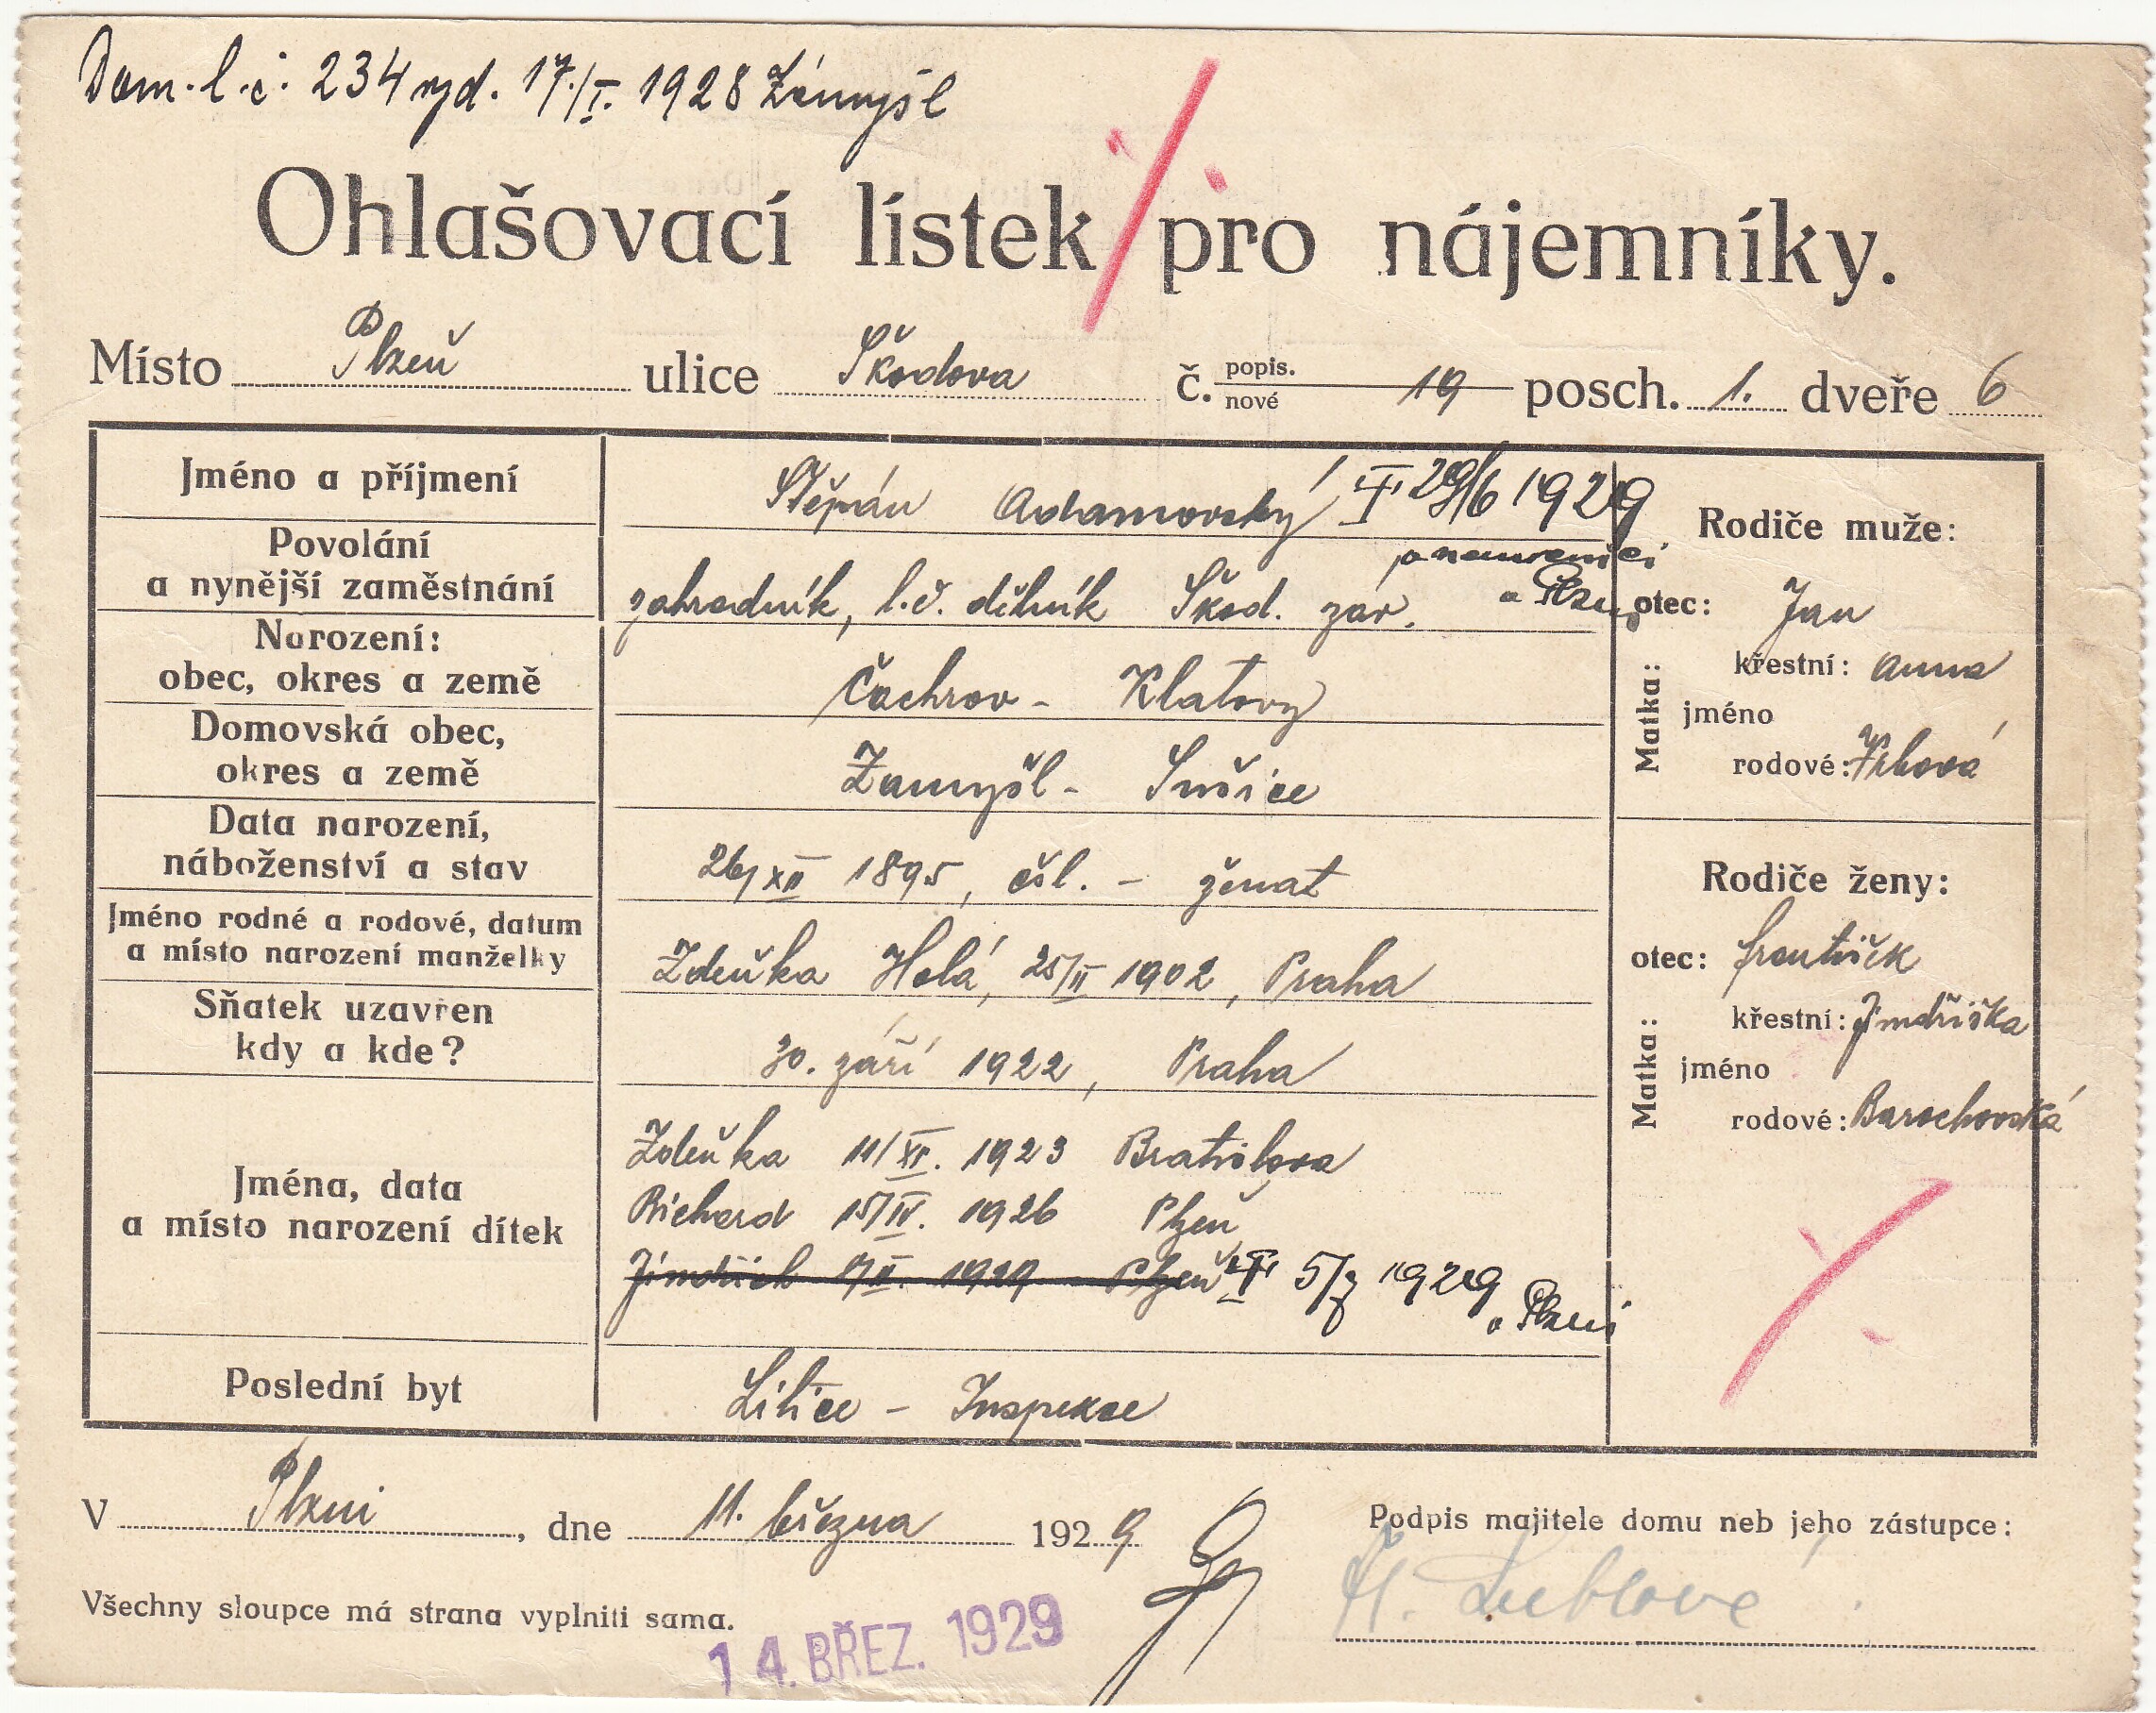 Dom. l. č. 234 vyd. 17./I. 1928 Zámyšl
Ohlašovací lístek pro nájemníky.
Místo Plzeň ulice Škodova č. popis. nové 19 posch. 1. dveře 6
Jméno a příjmení Štěpán Adamovský † 29/6 1929
v nemocnici
v Plzni
Povolání
a nynější zaměstnání zahradník, t.č. dělník Škod. záv.
Narození:
obec, okres a země Čachrov - Klatovy
Domovská obec,
okres a země Zamyšl - Sušice
Data narození,
náboženství a stav 26/XII 1895, čsl. - ženat
Jméno rodné a rodové, datum
a místo narození manželky Zdeňka Holá, 25/II 1902, Praha
Sňatek uzavřen
kdy a kde? 30. září 1922, Praha
Jména, data
a místo narození dítek
Zdeňka 11/XI. 1923 Bratislava
Richard 15/IV. 1926 Plzeň
Jindřich 1929 Plzeň † 5/7 1929
v Plzni
Poslední byt Litice - Inspekce
Rodiče muže:
otec: Jan
Matka:
křestní: Anna
jméno
rodové: Vrbová
Rodiče ženy:
otec: František
Matka:
křestní: Jindřiška
jméno
rodové: Barochovská
V Plzni, dne 11. března 1929
Podpis majitele domu neb jeho zástupce:
Všechny sloupce má strana vyplniti sama.
14. BŘEZ. 1929